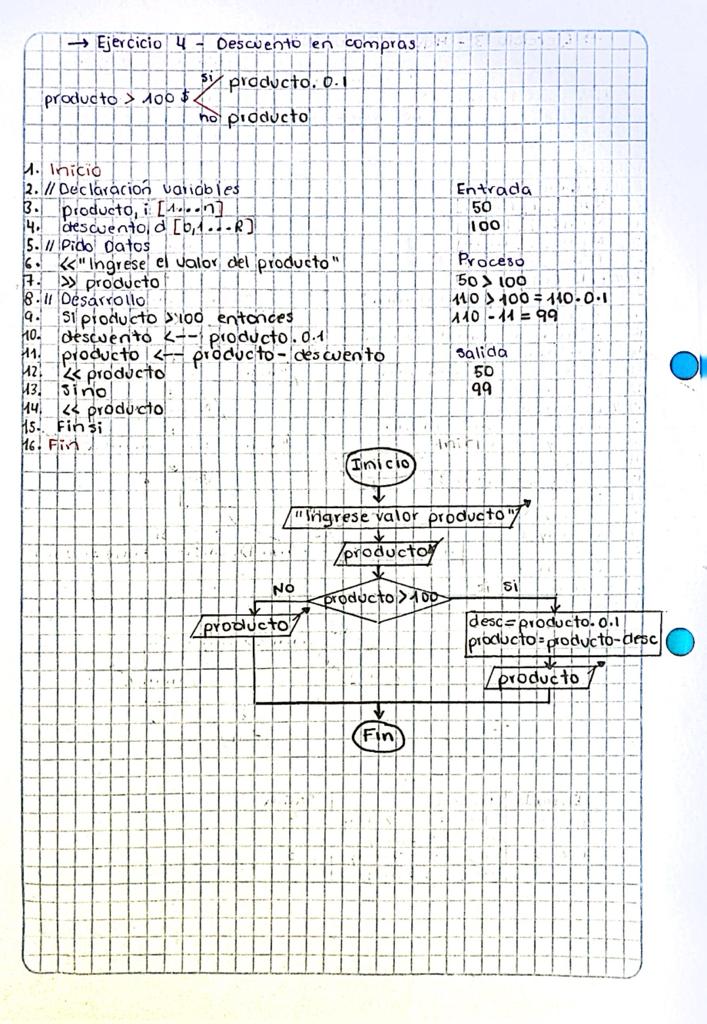 → Ejercicio 4 - Descuento en compras
producto > 100 $
si producto. 0.1
no producto
1. Inicio
2. // Declaración variables
3. producto, i [1...n]
4. descuento, d [0,1...R]
5. // Pido Datos
6. << "Ingrese el valor del producto"
7. >> producto
8. // Desarrollo
9. Si producto > 100 entonces
10. descuento <-- producto. 0.1
11. producto <-- producto - descuento
12. << producto
13. Sino
14. << producto
15. Finsi
16. Fin
Entrada
50
100
Proceso
50 > 100
110 > 100 = 110 - 0.1
110 - 11 = 99
Salida
50
99
Inicio
"Ingrese valor producto"
producto
NO
producto > 100
Si
producto
desc = producto. 0.1
producto = producto - desc
producto
Fin